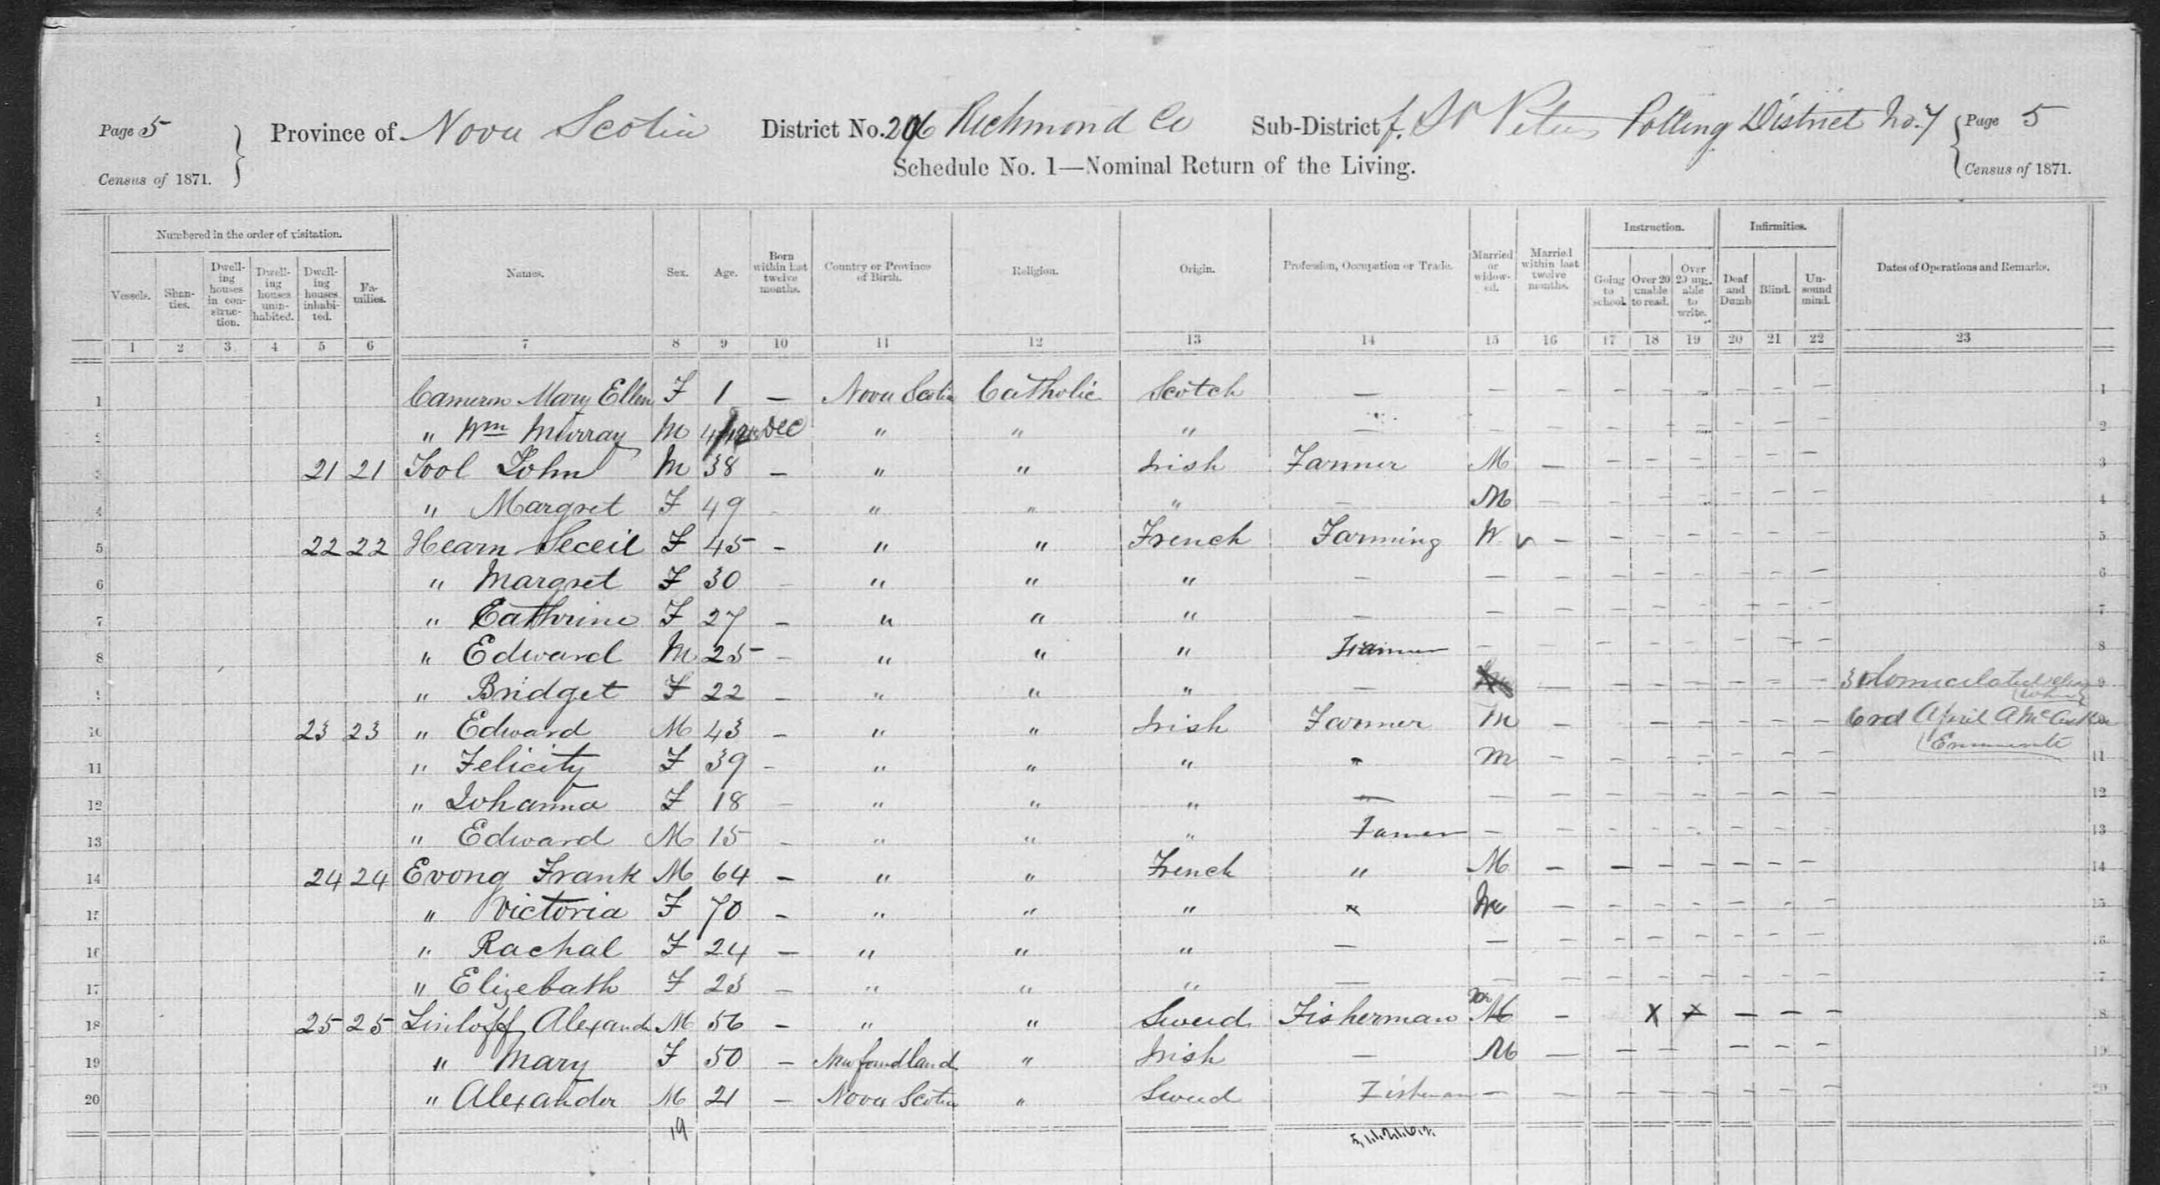 Page 5 Province of Nova Scotia District No. 206 Richmond Co Sub-District f. St Peters Polling District No. 7 Page 5
Census of 1871. Schedule No. 1—Nominal Return of the Living. Census of 1871.
Numbered in the order of visitation. Instruction. Infirmities.
Vessels. Shanties. Dwelling houses in construction. Dwelling houses uninhabited. Dwelling houses inhabited. Families. Names. Sex. Age. Born within last twelve months. Country or Province of Birth. Religion. Origin. Profession, Occupation or Trade. Married or widowed. Married within last twelve months. Going to school. Over 20 unable to read. Over 20 unable to write. Deaf and Dumb Blind. Unsound mind. Dates of Operations and Remarks.
1 2 3 4 5 6 7 8 9 10 11 12 13 14 15 16 17 18 19 20 21 22 23
1 Cameron Mary Ellen F 1 — Nova Scotia Catholic Scotch — — — — — — — — — 1
2 " Wm Murray M 4/12 Dec " " " — — — — — — — — 2
3 21 21 Tool John M 38 — " " Irish Farmer M — — — — — — — 3
4 " Margret F 49 - " " " — M — — — — — — — 4
5 22 22 Hearn Seceil F 45 - " " French Farming W v — — — — — — — 5
6 " Margret F 30 — " " " — — — — — — — — — 6
7 " Cathrine F 27 — " " " — — — — — — — — — 7
8 " Edward M 25 — " " " Farmer — — — — — — — 8
9 " Bridget F 22 — " " " — — — — — — — — 9
10 23 23 " Edward M 43 — " " Irish Farmer M - — — — — — — 6rd April 10
11 " Felicity F 39 - " " " " M — — — — — — — 11
12 " Johanna F 18 — " " " — — — — — — — — — 12
13 " Edward M 15 — " " " Farmer — — — — — — — 13
14 24 24 Evong Frank M 64 — " " French " M — — — — — — — 14
15 " Victoria F 70 — " " " — — — — — — — 15
16 " Rachal F 24 — " " " — — — — — — — — — 16
17 " Elizebath F 23 " " " — — — — — — — — — 17
18 25 25 Alexand M 56 — " " Sweed Fisherman M — X X — — — 18
19 " Mary F 50 — Newfoundland " Irish — M — — — — — — 19
20 " Alexander M 21 — Nova Scotia " Sweed Fisherman — 20
19